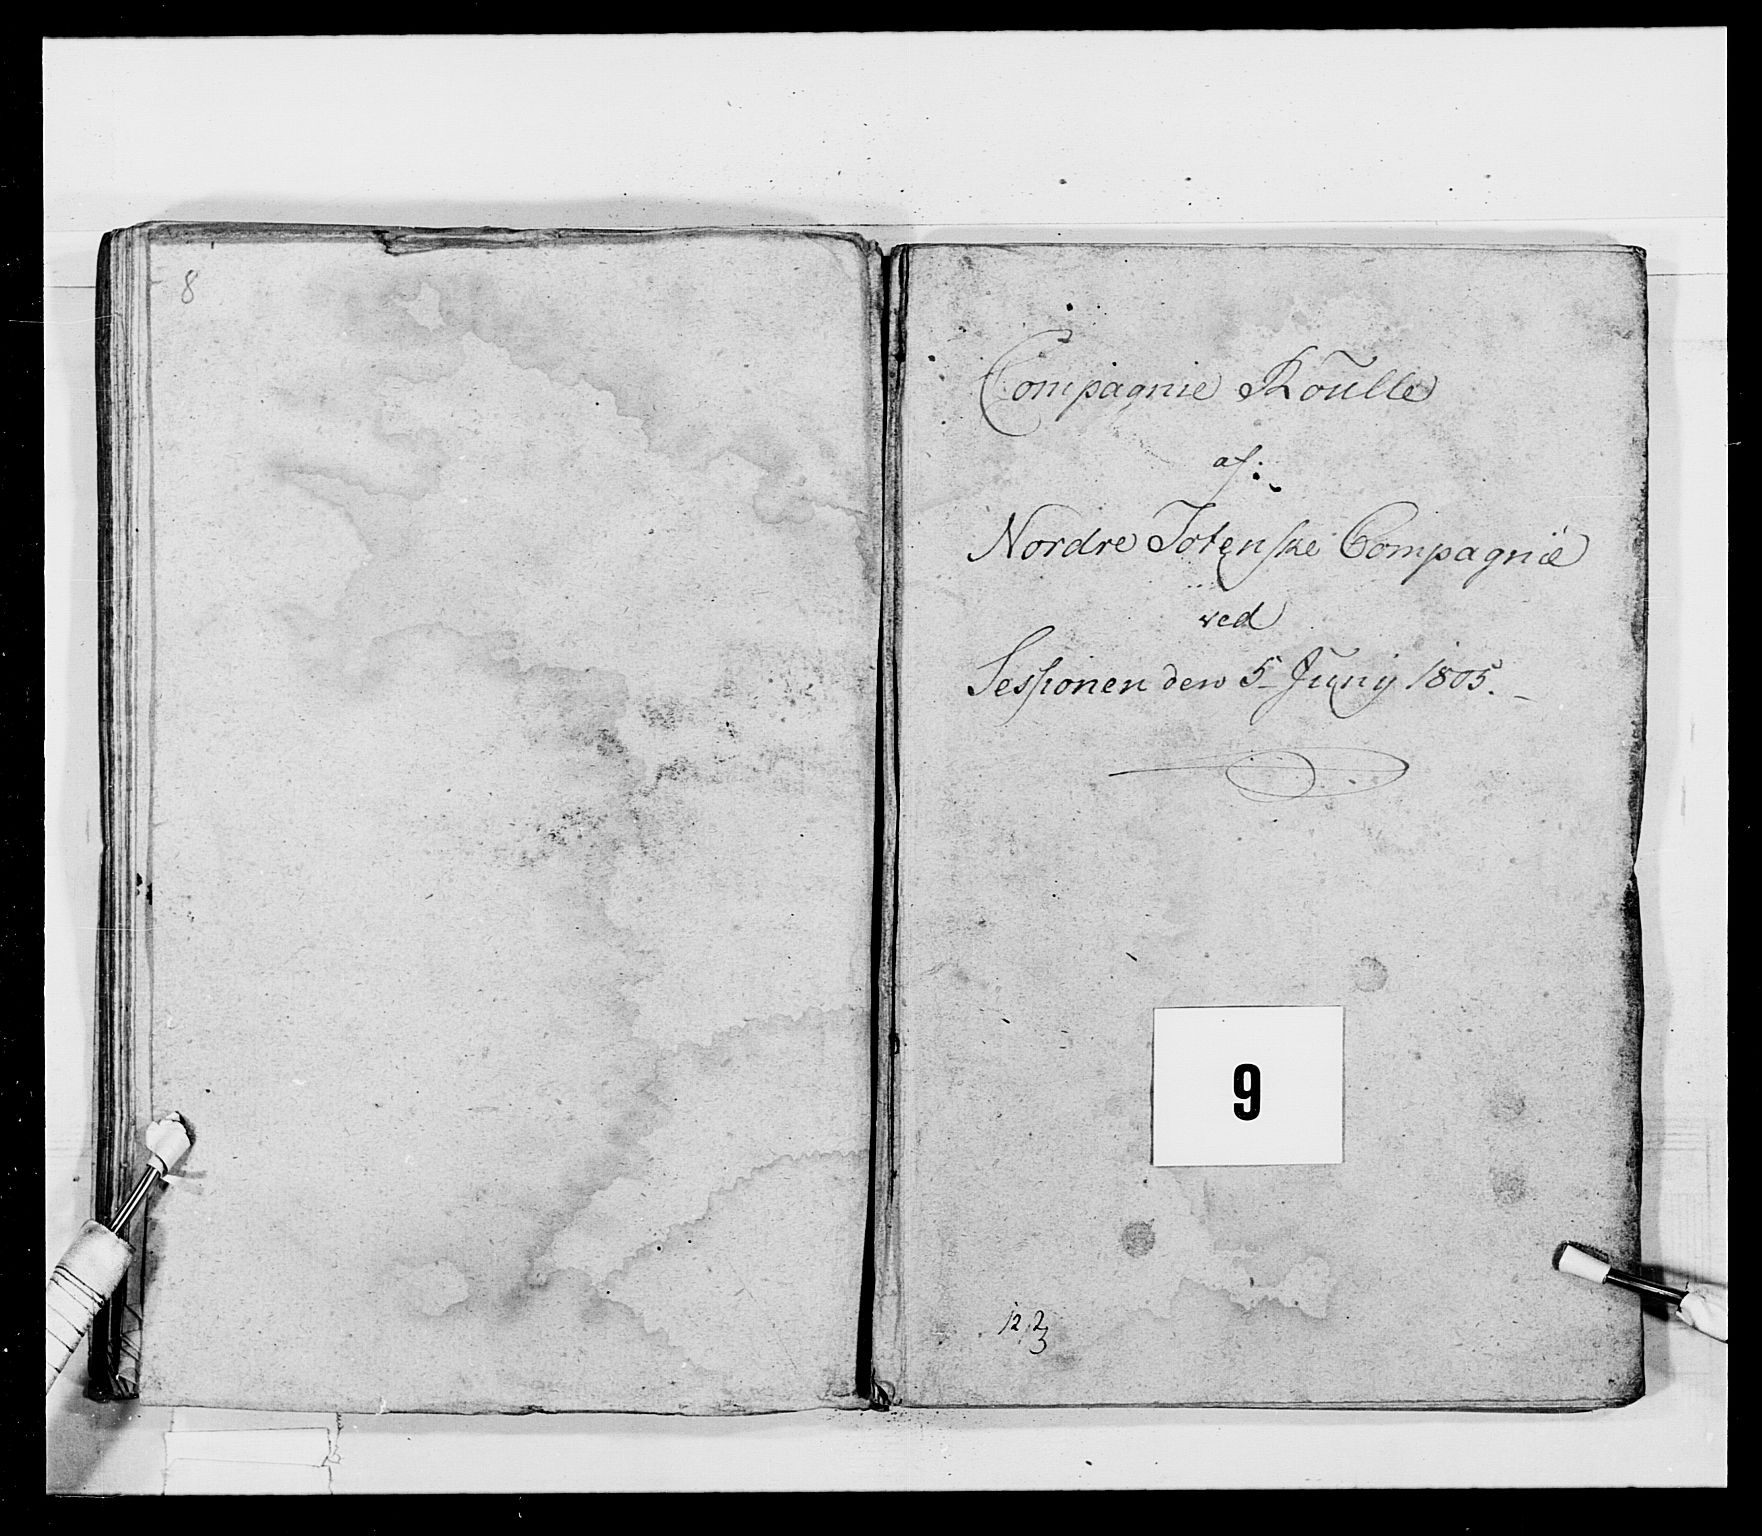 8
Compagnie Roulle
af
Nordre Totenske Compagnie
ved
Sessionen den 5 Junij 1805.
9